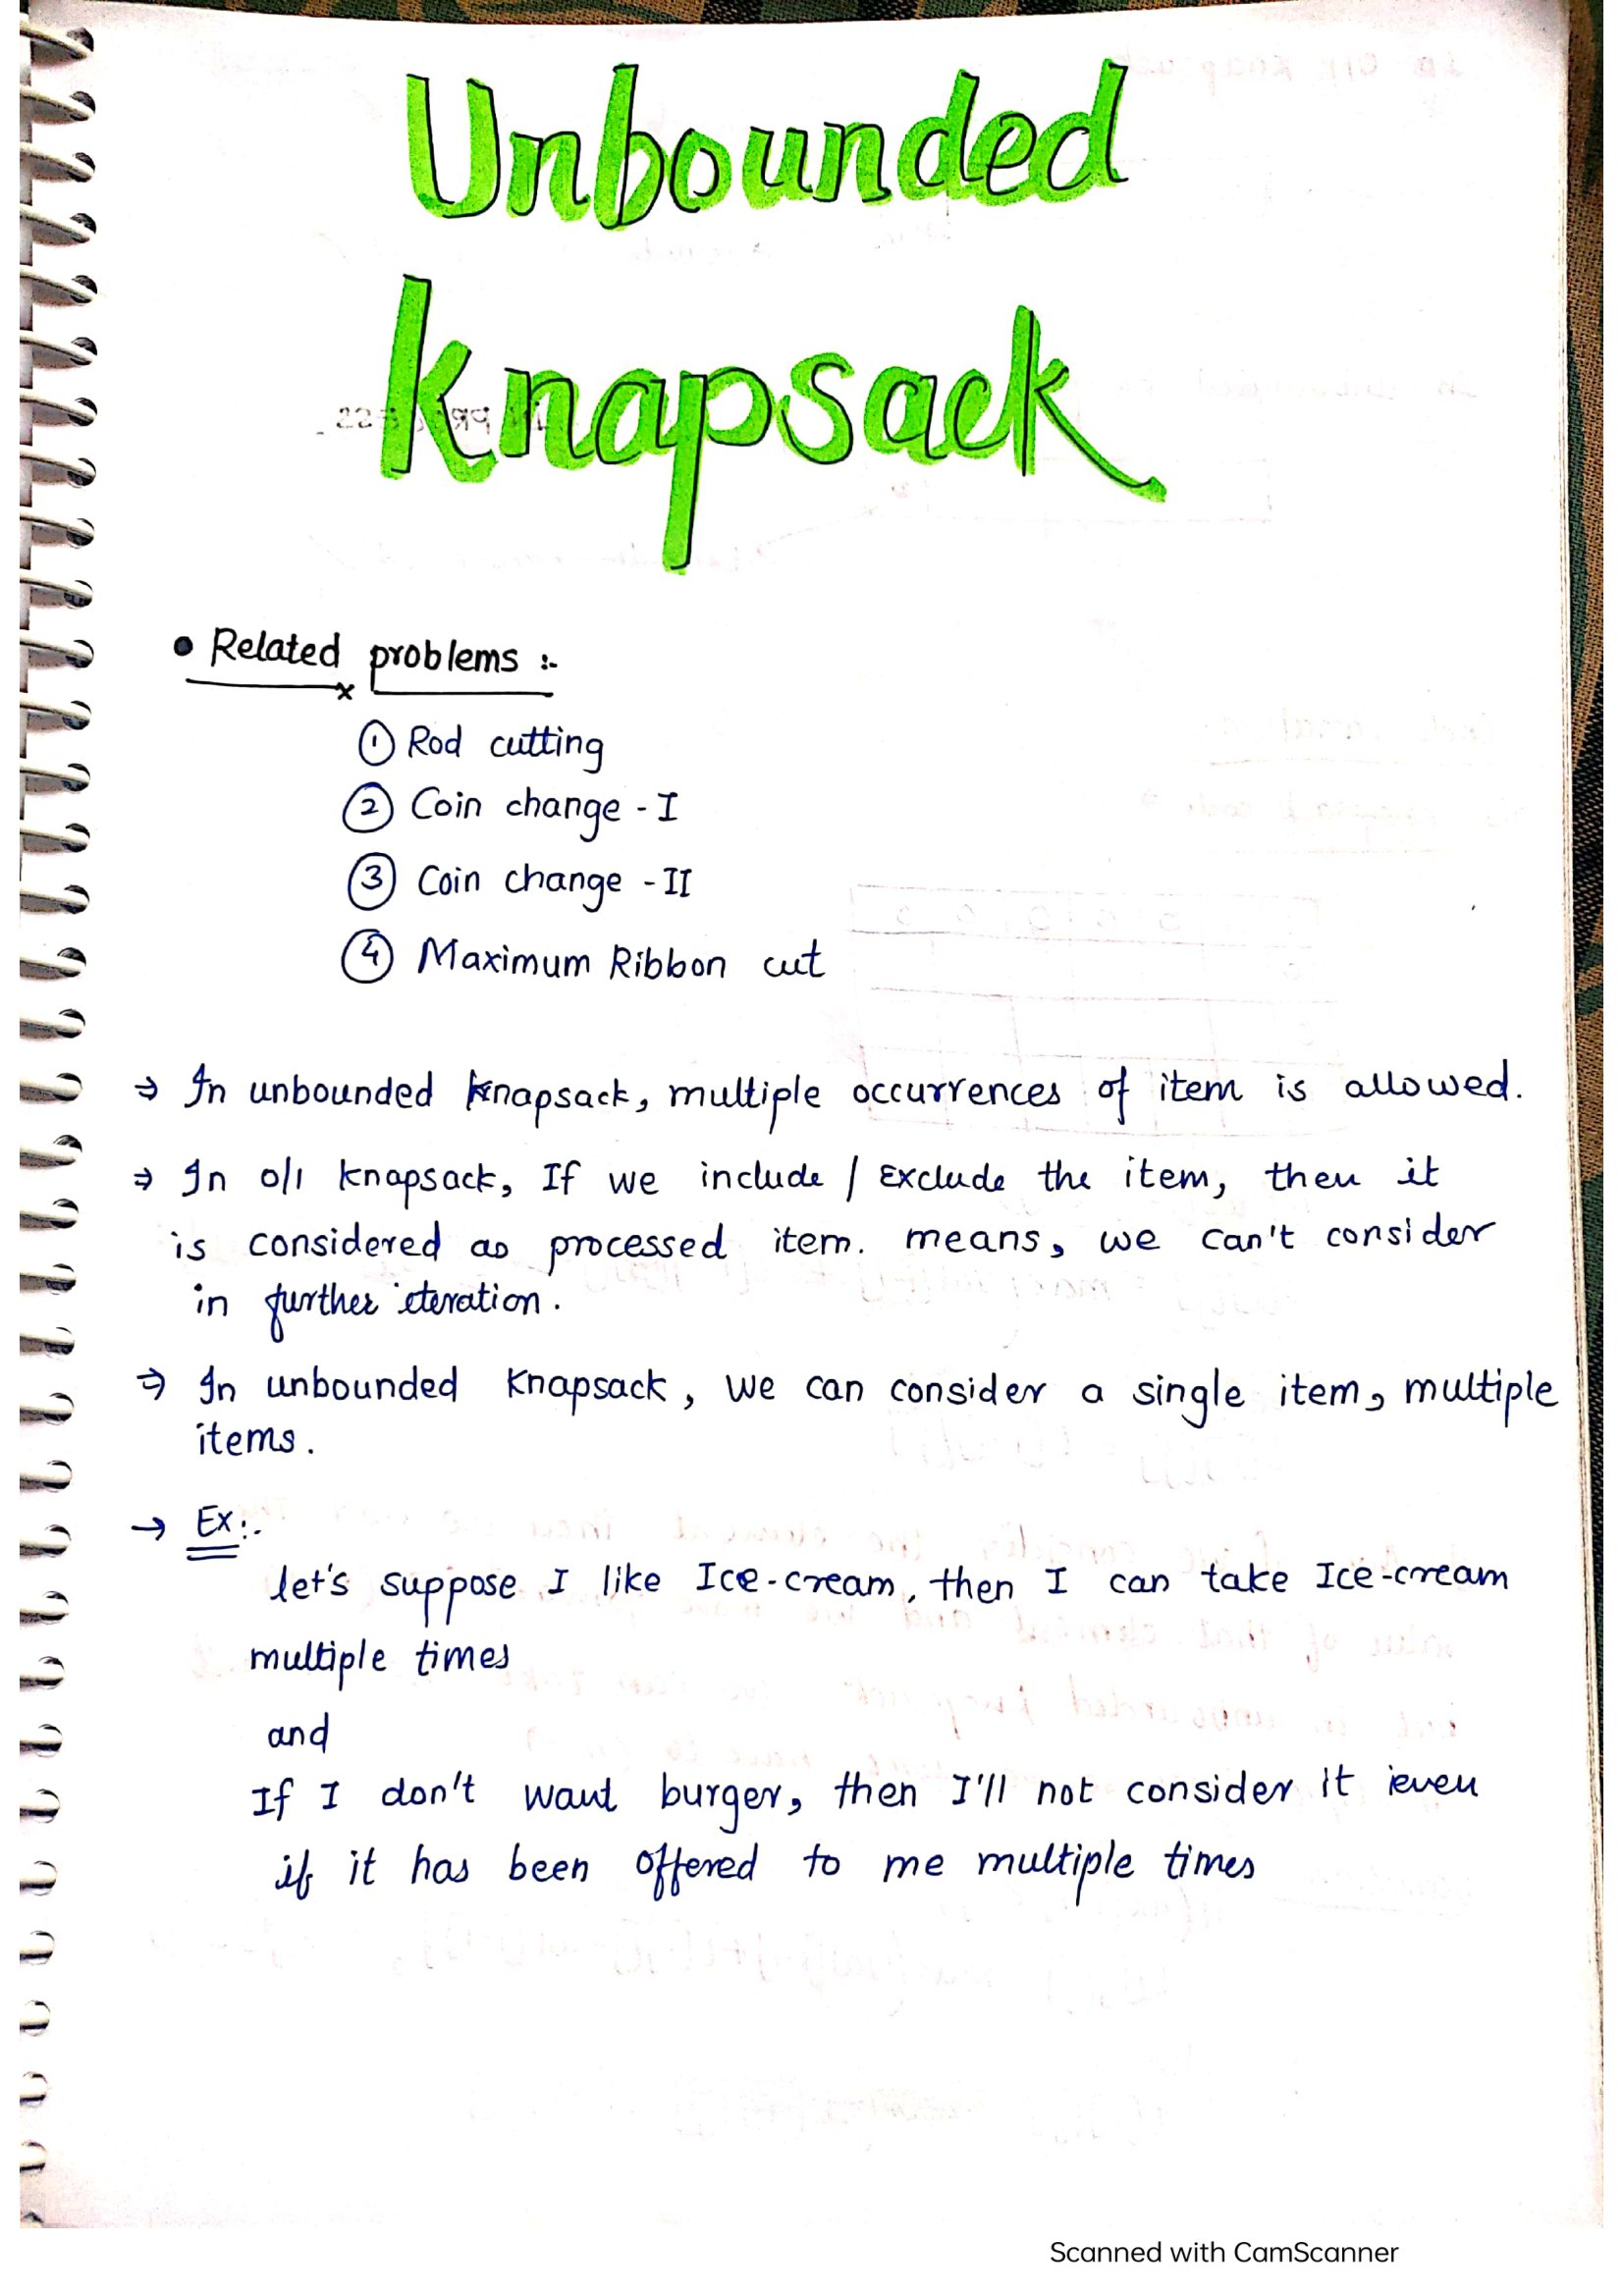 Unbounded
Knapsack
• Related problems :-
① Rod cutting
② Coin change - I
③ Coin change - II
④ Maximum Ribbon cut
⇒ In unbounded knapsack, multiple occurrences of item is allowed.
⇒ In 0/1 knapsack, If we include / Exclude the item, then it
is considered as processed item. means, we can't consider
in further iteration.
⇒ In unbounded Knapsack, we can consider a single item, multiple
items.
→ Ex:-
let's suppose I like Ice-cream, then I can take Ice-cream
multiple times
and
If I don't want burger, then I'll not consider it even
if it has been offered to me multiple times
Scanned with CamScanner